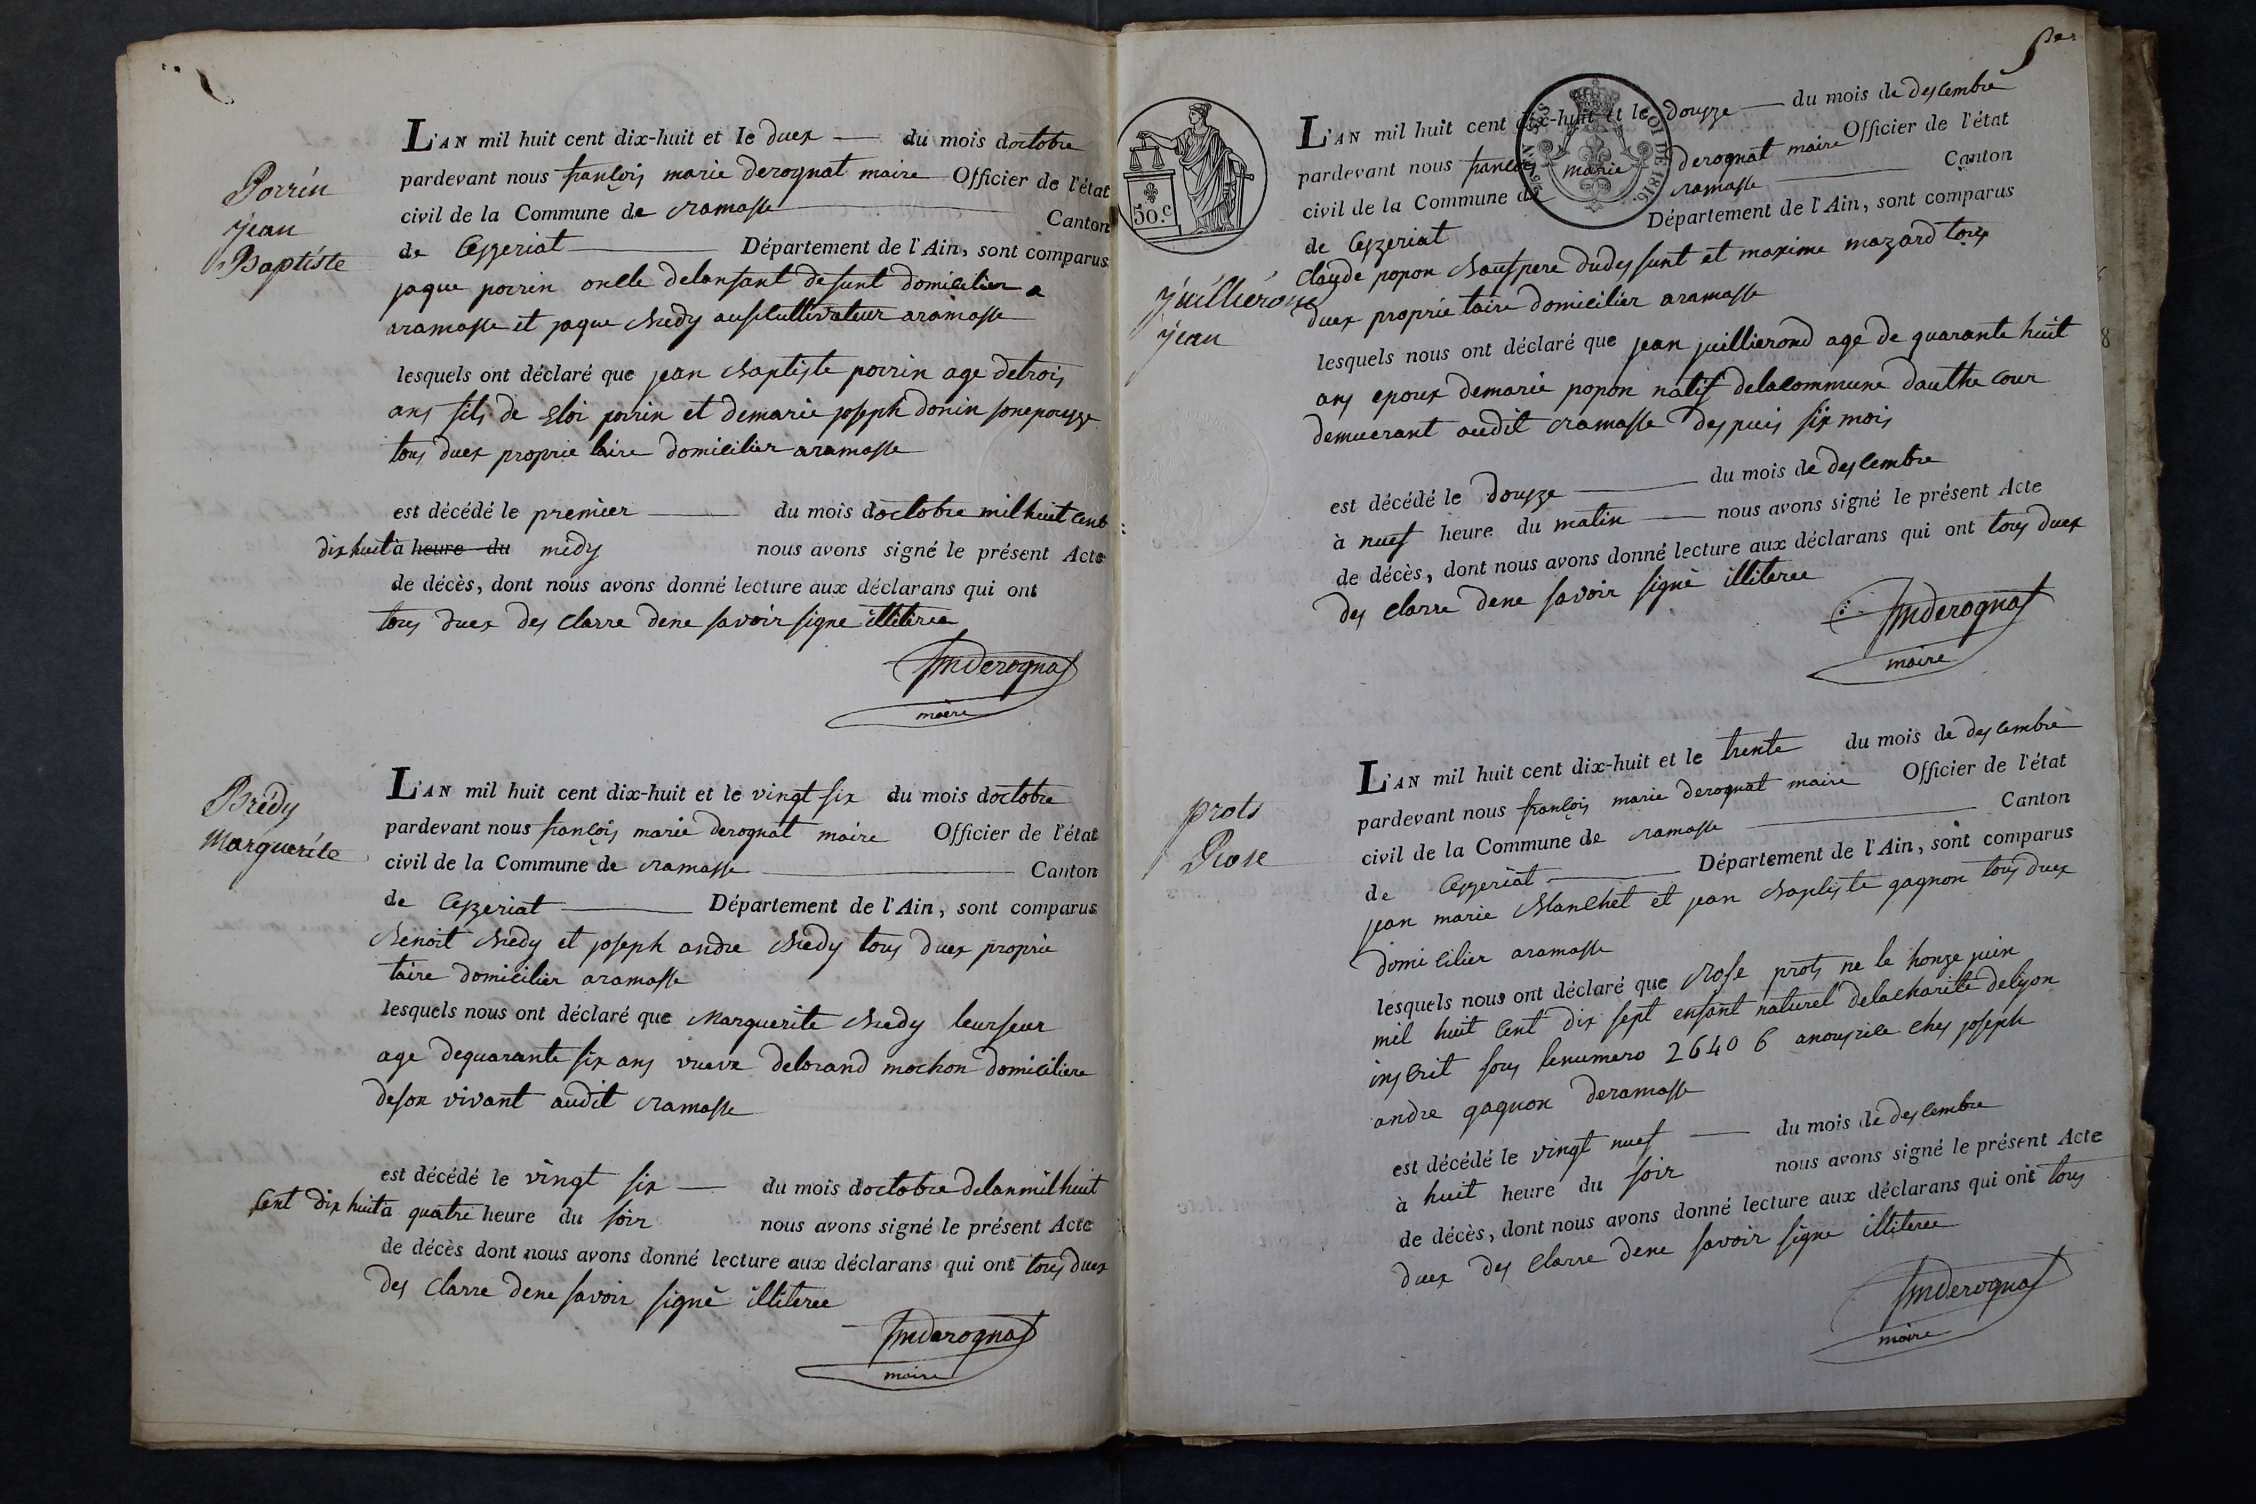 Porrin
jean
Baptiste
L'AN mil huit cent dix-huit et le duex du mois doctobre
pardevant nous françois marie derognat maire Officier de l'état
civil de la Commune de ramasse Canton
de Cezzeriat Département de l'Ain, sont comparus
jaque porrin oncle delanfant defunt domicilier a
aramasse et jaque bredy ausi cultivateur aramasse
lesquels ont déclaré que jean baptiste porrin age detrois
ans fils de Eloi porrin et demarie joseph donin sonepouzze
tous duex proprietaire domicilier aramasse
est décédé le premier du mois doctobre mil huit cent
dix huit à heure du midy nous avons signé le présent Acte
de décès, dont nous avons donné lecture aux déclarans qui ont
tous duex des clarre dene savoir signe illiteree
fmderognat
maire
Bredy
Marguerite
L'AN mil huit cent dix-huit et le vingt six du mois doctobre
pardevant nous françois marie derognat maire Officier de l'état
civil de la Commune de ramasse Canton
de Cezzeriat Département de l'Ain, sont comparus
benoit bredy et joseph andre bredy tous duex proprie
taire domicilier aramasse
lesquels nous ont déclaré que Marguerite bredy leurseur
age dequarante six ans vueve delorand mochon domiciliere
deson vivant audit ramasse
est décédé le vingt six du mois doctobre delanmilhuit
cent dix huit à quatre heure du soir nous avons signé le présent Acte
de décès dont nous avons donné lecture aux déclarans qui ont tous duex
des clarre dene savoir signé illiteree
fmderognat
maire
50.c
LOI DE 1816.
L'AN mil huit cent dix-huit et le douzze du mois de descembre
pardevant nous françois marie derognat maire Officier de l'état
civil de la Commune de ramasse Canton
de Cezzeriat Département de l'Ain, sont comparus
juillierond
jean
Claude popon baufpere dudesfunt et maxime mazard tous
duex proprietaire domicilier aramasse
lesquels nous ont déclaré que jean juillierond age de quarante huit
ans epoux demarie popon natif delacommune dauthe cour
demuerant audit ramasse despuis six mois
est décédé le douzze du mois de descembre
à nuef heure du matin nous avons signé le présent Acte
de décès, dont nous avons donné lecture aux déclarans qui ont tous duex
des clarre dene savoir signé illiteree
fmderognat
maire
prots
Rose
L'AN mil huit cent dix-huit et le trente du mois de descembre
pardevant nous françois marie derognat maire Officier de l'état
civil de la Commune de ramasse Canton
de Cezzeriat Département de l'Ain, sont comparus
jean marie blanchet et jean baptiste gagnon tous duex
domicilier aramasse
lesquels nous ont déclaré que rose prots ne le honze juin
mil huit cent dix sept enfant naturel delacharite delyon
inscrit sous lenumero 26406 anourice ches joseph
andre gagnon deramasse
est décédé le vingt nuef du mois de descembre
à huit heure du soir nous avons signé le présent Acte
de décès, dont nous avons donné lecture aux déclarans qui ont tous
duex des clarre dene savoir signe illiteree
fmderognat
maire